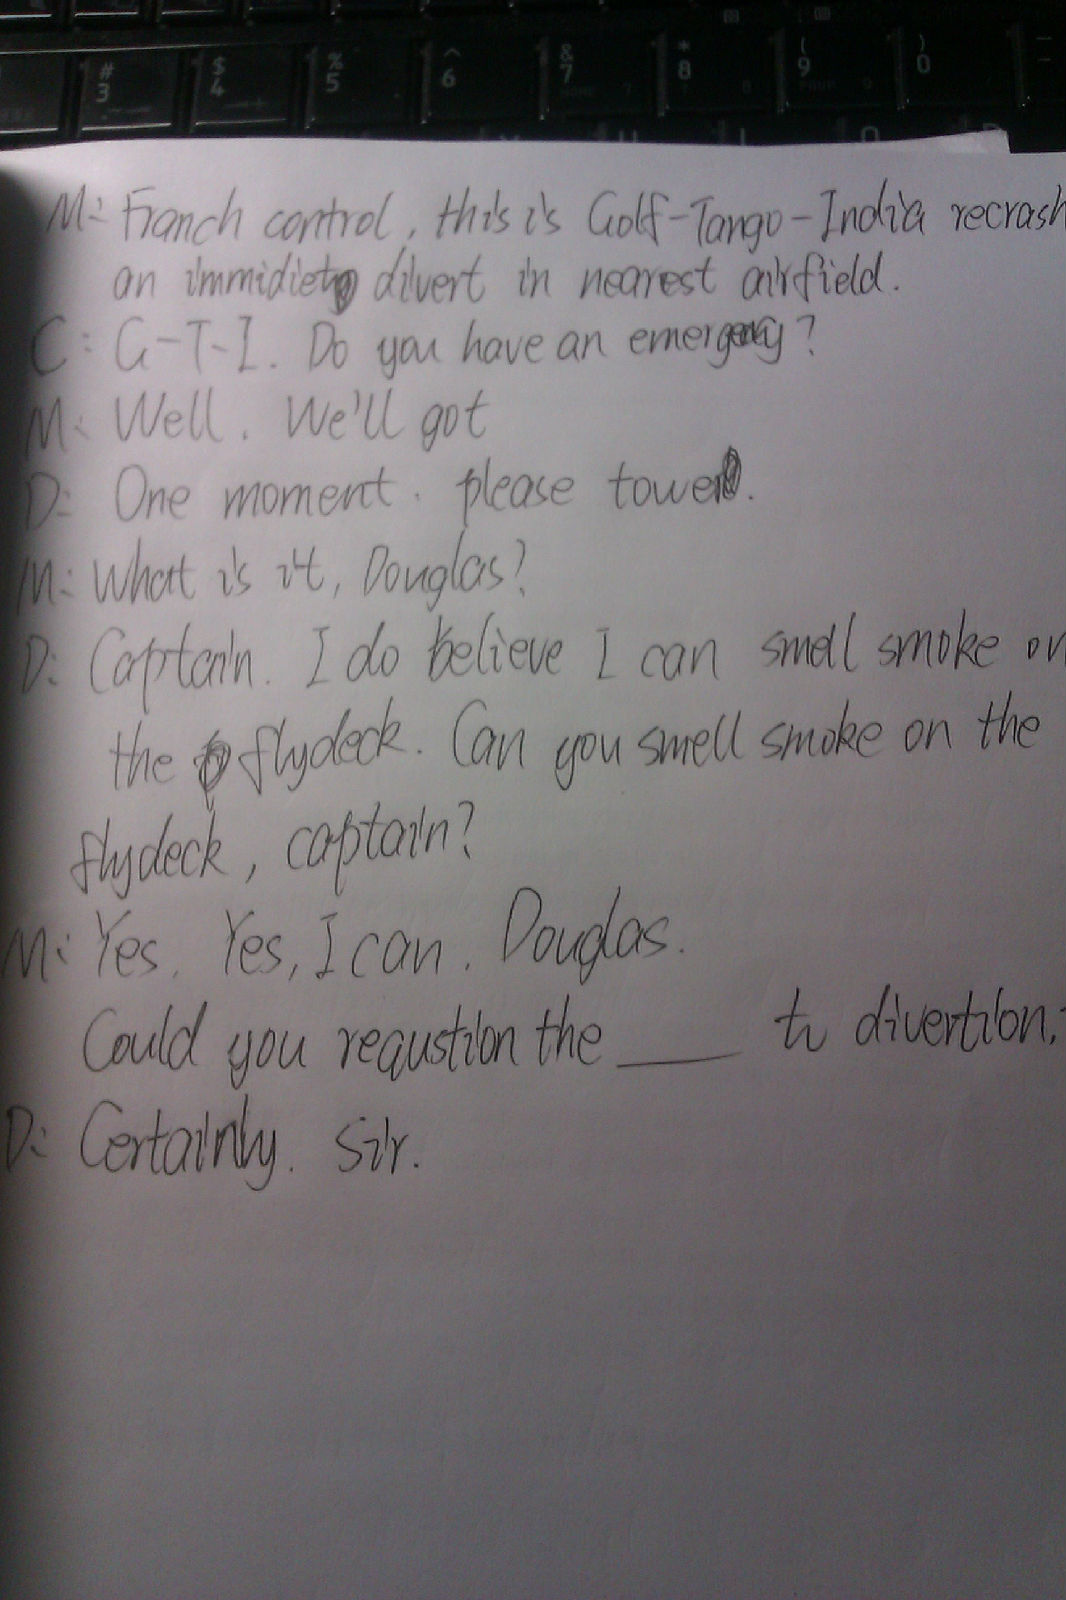 # 3 $ 4 % 5 ^ 6 & 7 * 8 ( 9 ) 0
M: Franch control, this is Golf-Tango-India recrash
an immidiet divert in nearest airfield.
C: G-T-I. Do you have an emergency?
M: Well. We'll got
D: One moment. please tower.
M: What is it, Douglas?
D: Captain. I do believe I can smell smoke on
the flydeck. Can you smell smoke on the
flydeck, captain?
M: Yes. Yes, I can. Douglas.
Could you requstion the ____ to divertion.
D: Certainly. Sir.